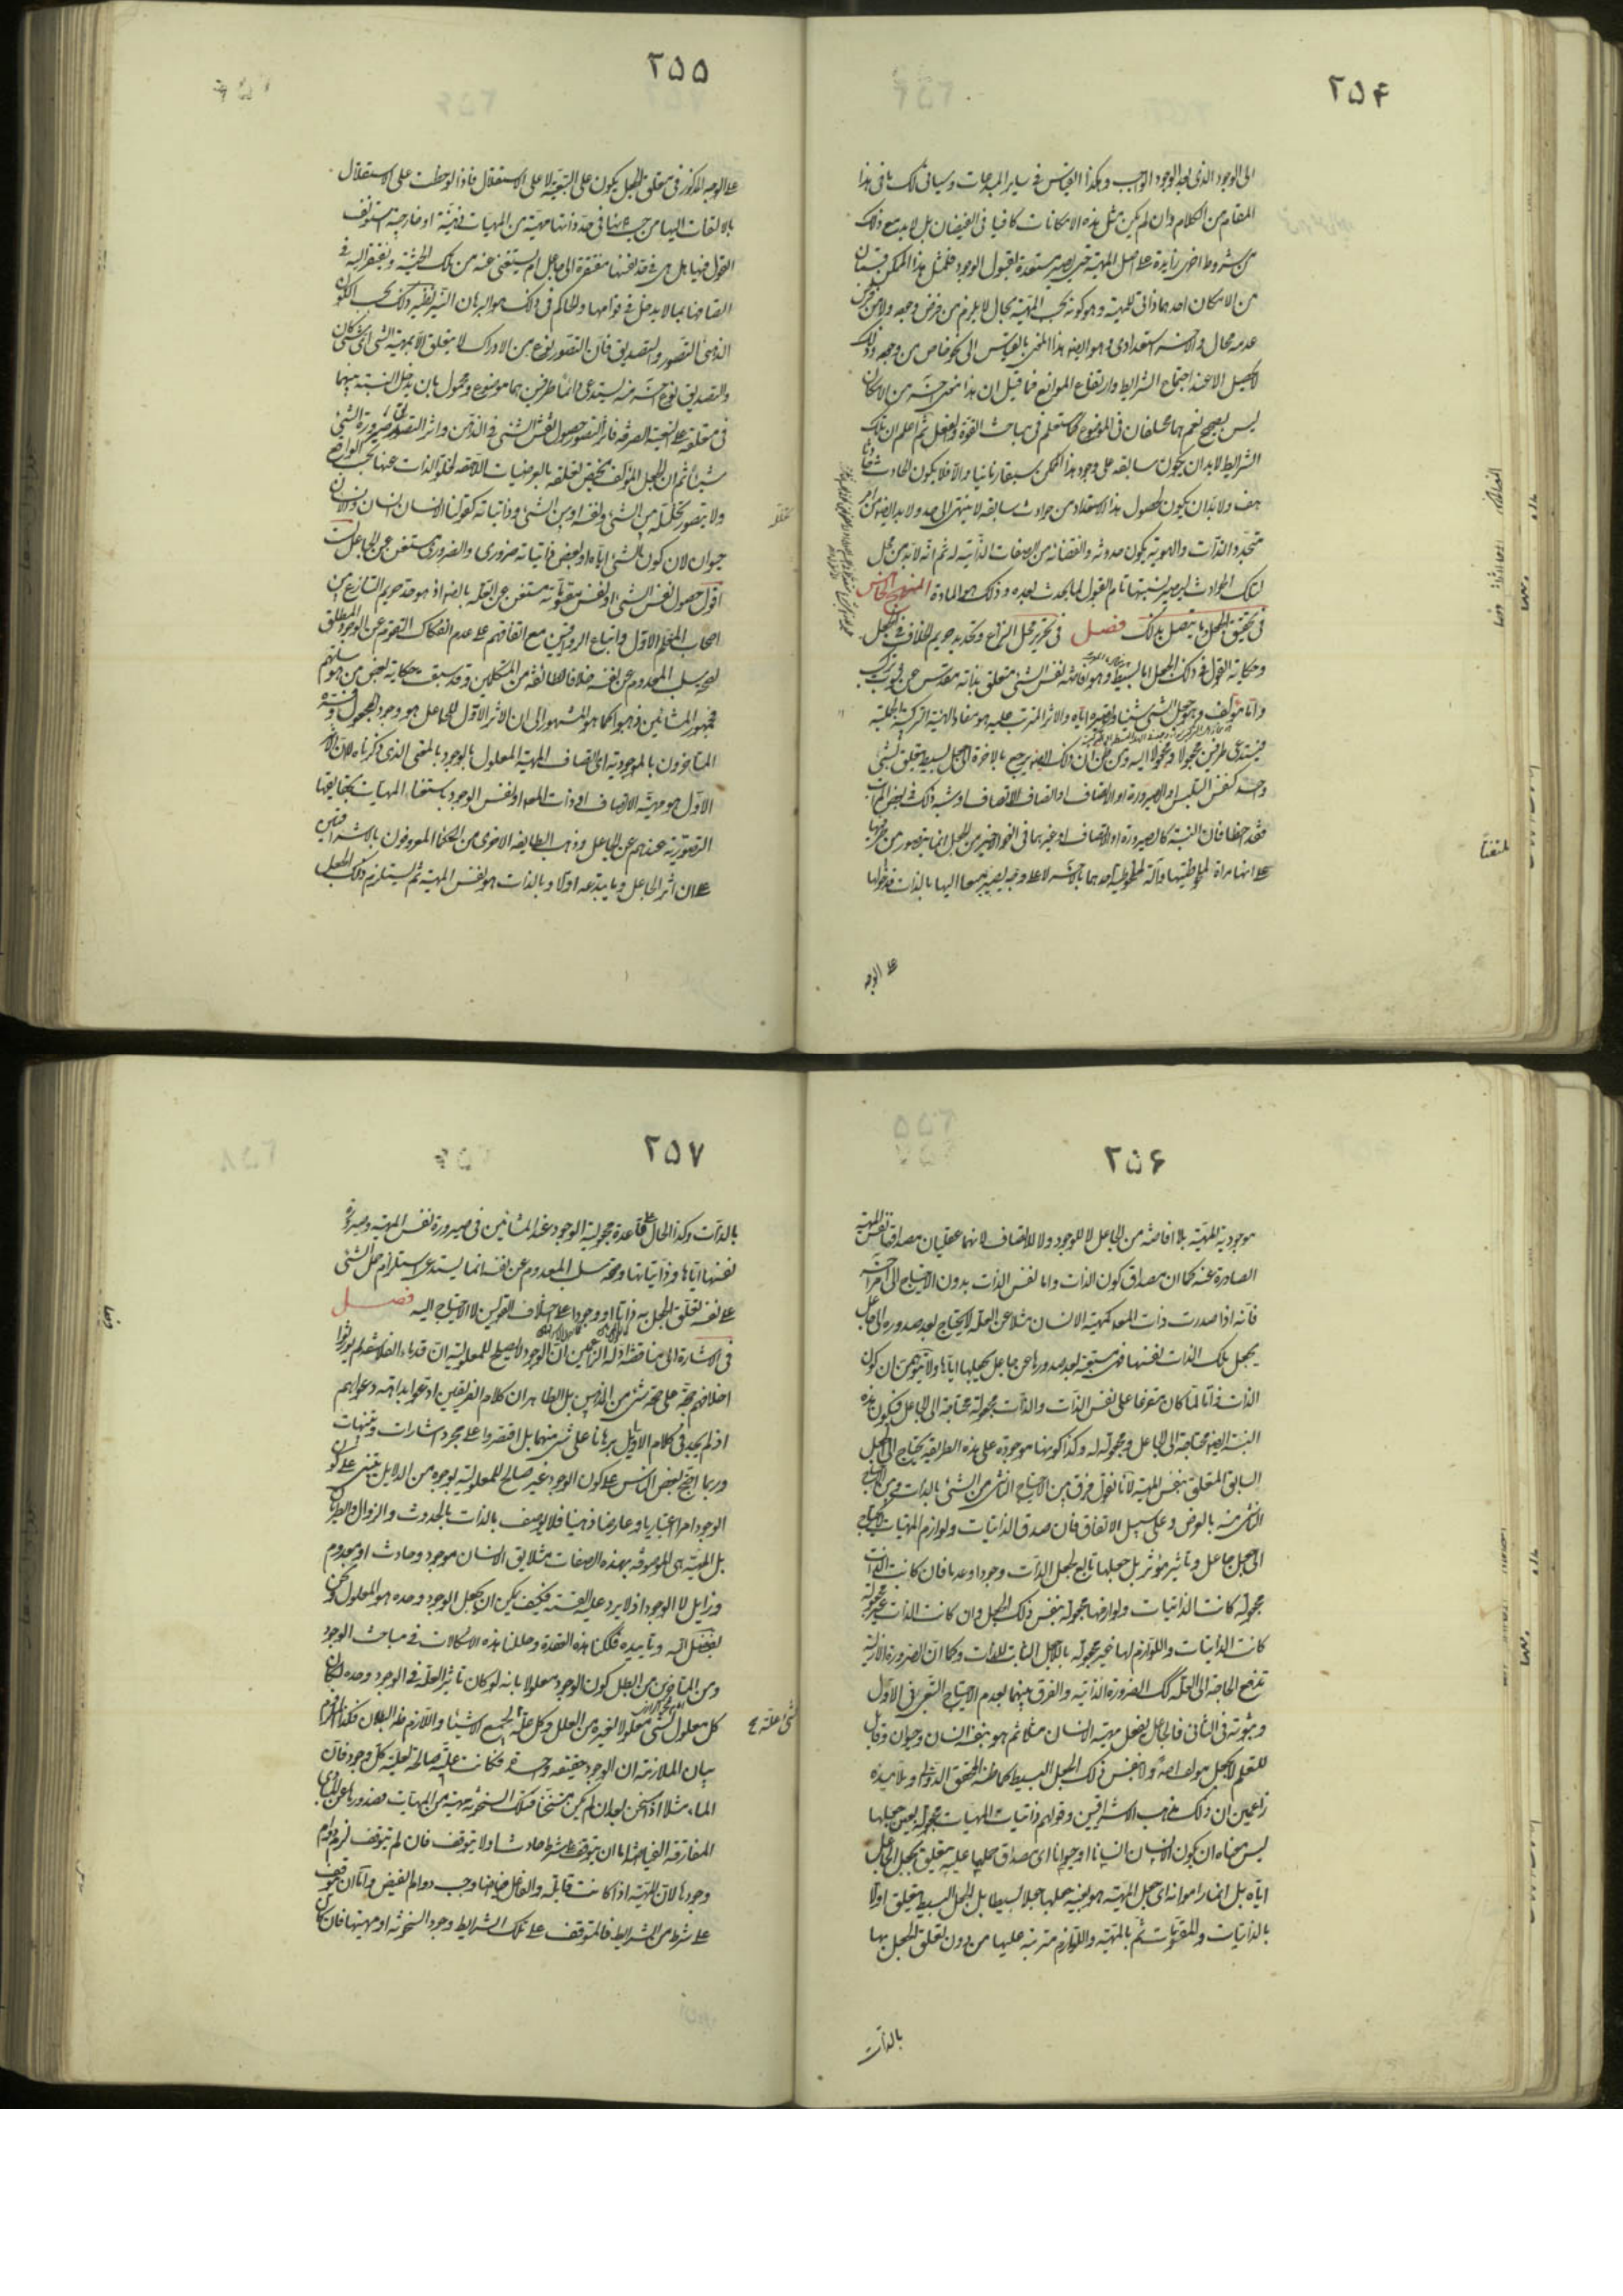 ۲۵۴
الی الوجود الذی بعد الوجود الواجب و هکذا القیاس فی سایر المبدعات و سیاتی لک باقی هذا
المقام من الکلام و ان لم یکن مثل هذه الامکانات کافیا فی الفیضان بل لا بد مع ذلک
من شروط اخری زایدة علی اصل المهیة حتی یصیر مستعدة لقبول الوجود فلمثل هذا الممکن قسمان
من الامکان احدهما ذاتی للمهیة و هو کونه بحسب المهیة بحال لا یلزم من فرض وجوده و لا من فرض
عدمه محال و الاخر استعدادی و هو ایضا هذا المعنی بالقیاس الی نحو خاص من وجوده و ذلک
لا یحصل الا عند اجتماع الشرایط و ارتفاع الموانع فما قیل ان هذا معنی اخر من الامکان
لیس بصحیح نعم هما مختلفان فی الموضوع کما ستعلم فی مباحث القوة و الفعل ثم اعلم ان تلک
الشرایط لا بد ان یکون سابقه علی وجود هذا الممکن سبقا زمانیا و الا فلا یکون الحادث حادثا
هف و لا بد ان یکون لحصول هذا الاستعداد من حوادث سابقه لا ینتهی الی حد و لا بد ایضا من امر
متجدد الذات و الهویة یکون حدوثه و انقضائه من الصفات الذاتیة له ثم انه لا بد من محل
لتلک الحوادث لیصیر بسببها تام القبول لما یحدث بعده و ذلک هو المادة المنهج الخامس
فی تحقیق الجعل و ما یتصل بذلک فصل فی تحریر محل النزاع و تحدید حریم الخلاف فی الجعل
و حکایة القول فی ذلک الجعل اما بسیط و هو افاضة نفس الشئ متعلق بذاته مقدس عن شوب ترکیب
و اما مؤلف و هو جعل الشئ شیئا و تصییره ایاه و الاثر المترتب علیه هو مفاد الهیئة الترکیبیة الحملیة
فیستدعی طرفین مجعولا و مجعولا الیه و من ظن ان ذلک ایضا یرجع بالاخرة الی جعل بسیط یتعلق بشئ
واحد کنفس التلبس او الصیرورة او الاتصاف او اتصاف الاتصاف او شبه ذلک فی بعض المراتب
فقد اخطا فان النسبة کالصیرورة او الاتصاف او غیرهما فی النحو الاخیر من الجعل انما یتصور من طرفیها
علی انها مراة لملاحظتهما و آلة لملحوظیة احدهما بالاخر لا علی وجه یصیر ملتفتا الیها بالذات فدخولها
علی الوجه
ملتفتا
۲۵۵
علی الوجه المذکور فی متعلق الجعل یکون علی التبعیة لا علی الاستقلال فاذا لوحظت علی الاستقلال
بالالتفات الیها من حیث انها فی حد ذاتها مهیة من المهیات ذهنیة او خارجیة استونف
القول فیها بل هی فی حد نفسها مفتقرة الی جاعل ام یستغنی عنه من تلک الحیثیة و یفتقر الیه فی
اتصافها بما لا یدخل فی قوامها و الحاکم فی ذلک هو البرهان النیر نظیر ذلک بحسب الکون
الذهنی التصور و التصدیق فان التصور نوع من الادراک لا یتعلق الا بمهیة الشئ ای شئ کان
و التصدیق نوع اخر منه یستدعی دائما طرفین هما موضوع و محمول بان یدخل النسبة بینهما
فی متعلقه علی التبعیة الصرفه فاثر التصور حصول نفس الشئ فی الذهن و اثر التصدیق صیرورة الشئ
شیئا ثم ان الجعل المؤلف یختص تعلقه بالعرضیات اللاحقه لخلو الذات عنها بحسب الواقع
و لا یتصور تخلله بین الشئ و نفسه او بین الشئ و ذاتیاته کقولنا الانسان انسان و الانسان
حیوان لان کون الشئ ایاه او بعض ذاتیاته ضروری و الضروری مستغن عن الجاعل لست
اقول حصول نفس الشئ او نفس مقوماته مستغن عن العلة بالضر اذ هو حد حریم التنازع بین
اصحاب المعلم الاول و اتباع الرواقیین مع اتفاقهم علی عدم انفکاک التقوم عن الوجود المطلق
لصحة سلب المعدوم عن نفسه خلافا لطائفة من المتکلمین و قد سبقت حکایة بعض من هوساتهم
فجمهور المشائین ذهبوا کما هو المشهور الی ان الاثر الاول للجاعل هو وجود المعلول و فسره
المتاخرون بالموجودیة ای اتصاف المهیة المعلول بالوجود بالمعنی الذی ذکرناه لا ان الاثر
الاول هو مهیة الاتصاف او ذات المعلول او نفس الوجود لاستغناء المهیات بحقایقها
التصوریة عندهم عن الجاعل و ذهب الطایفه الاخری من الحکما المعروفون بالاشراقیین
علی ان اثر الجاعل و ما یبتدعه اولا و بالذات هو نفس المهیة ثم یستلزم ذلک الجعل
۲۵۶
موجودیة المهیة بلا افاضة من الجاعل لا للوجود و لا للاتصاف لانهما عقلیان مصداقهما نفس المهیة
الصادرة عنه کما ان مصداق کون الذات ذاتا نفس الذات بدون الاحتیاج الی امر اخر
فانه اذا صدرت ذات المعلول کمهیة الانسان مثلا عن العلة لا یحتاج بعد صدوره الی جاعل
یجعل تلک الذات نفسها فهی مستغنیة بعد صدورها عن جاعل یجعلها ایاها و لا تتوهمن ان کون
الذات ذاتا لما کان متفرعا علی نفس الذات و الذات مجعولة محتاجة الی الجاعل فیکون هذه
النسبة ایضا محتاجة الی الجاعل و مجعولة له و کذا کونها موجودة علی هذه الطریقة یحتاج الی الجعل
السابق المتعلق بنفس المهیة لانا نقول فرق بین الاحتیاج الناشی من الشئ بالذات و بین الاحتیاج
الناشی منه بالعرض و علی سبیل الاتفاق فان صدق الذاتیات و لوازم المهیات لا یحتاج
الی جعل جاعل و تاثیر مؤثر بل جعلها تابع لجعل الذات وجودا و عدما فان کانت الذات
مجعولة کانت الذاتیات و لوازمها مجعولة بنفس ذلک الجعل و ان کانت الذات غیر مجعولة
کانت الذاتیات و اللوازم لها غیر مجعولة باللاجعل الثابت للذات و کما ان الضرورة الازلیة
تدفع الحاجة الی العلة کک الضرورة الذاتیة و الفرق بینهما بعدم الاحتیاج التبعی فی الاول
و ثبوته فی الثانی فالجاعل یفعل مهیة الانسان مثلا ثم هو بنفسه انسان و حیوان و قابل
للتعلم لا بجعل مؤلف اصلا و لا بنفس ذلک الجعل البسیط کما ظنه المحقق الدوانی و تلامیذه
زاعمین ان ذلک مذهب الاشراقیین و قولهم ذاتیات المهیات مجعولة بعین جعلها
لیس معناه ان یکون الانسان انسانا او حیوانا ای مصداق حملها علیه متعلق بجعل الجاعل
ایاه بل انما راموا انه ای جعل المهیة هو بعینه جعلها جعلا بسیطا بل الجعل البسیط یتعلق اولا
بالذاتیات و المقومات ثم بالمهیة و اللوازم مترتبة علیها من دون تعلق الجعل بها
بالذات
۲۵۷
بالذات و کذا الحال علی قاعدة مجعولیة الوجود عند المشائین فی صیرورة نفس المهیة و صیرورة
نفسها ایاها و ذاتیاتها و صحة سلب المعدوم عن نفسه انما یستدعی استلزام حمل الشئ
علی نفسه تعلق الجعل به ذاتا او وجودا علی اختلاف القولین لا الاحتیاج الیه فصل
فی الاشارة الی مناقضة ادلة الزاعمین ان الوجود لا یصلح للمعلولیة ان قدماء الفلاسفة لم یوردوا
اختلافهم حجة علی صحة شئ من المذهبین بل الظاهر ان کلام الفریقین ادعوا بداهة دعواهم
اذ لم نجد فی کلام الاوایل برهانا علی شئ منهما بل اقتصروا علی مجرد اشارات و تنبیهات
و ربما احتج بعض الناس علی کون الوجود غیر صالح للمعلولیة بوجوه من الدلایل مبتنی علی کون
الوجود امرا اعتباریا و عارضا ذهنیا فلا یوصف بالذات بالحدوث و الزوال و الطریان
بل المهیة هی الموصوفة بهذه الصفات مثلا یق الانسان موجود و حادث او معدوم
و زایل لا الوجود اذ لا یرد علیه القسمة فکیف یمکن ان یجعل الوجود وحده هو المعلول و نحن
بفضل الله و تأییده فککنا هذه العقدة و حللنا هذه الاشکالات فی مباحث الوجود
و من المتاخرین من ابطل کون الوجود معلولا بانه لو کان تاثیر العلة فی الوجود وحده لکان
کل معلول لشئ معلولا لغیره من العلل و کل علة لجمیع الاشیاء و اللازم ظ البطلان فکذا الملزوم
بیان الملازمة ان الوجود حقیقة واحدة فکانت علة صالحة لعلیة کل وجود فان
الماء مثلا اذا سخن بعد ان لم یکن متسخنا فتلک السخونة مهیة من المهیات فصدورها عن المبادی
المفارقة الفیاضة اما ان یتوقف علی شرط حادث او لا یتوقف فان لم یتوقف لزم دوام
وجودها لان المهیة اذا کانت قابلة و الفاعل فیاضا وجب دوام الفیض و اما ان توقف
علی شرط من الشرایط فالمتوقف علی تلک الشرایط وجود السخونة او مهیتها فان کان